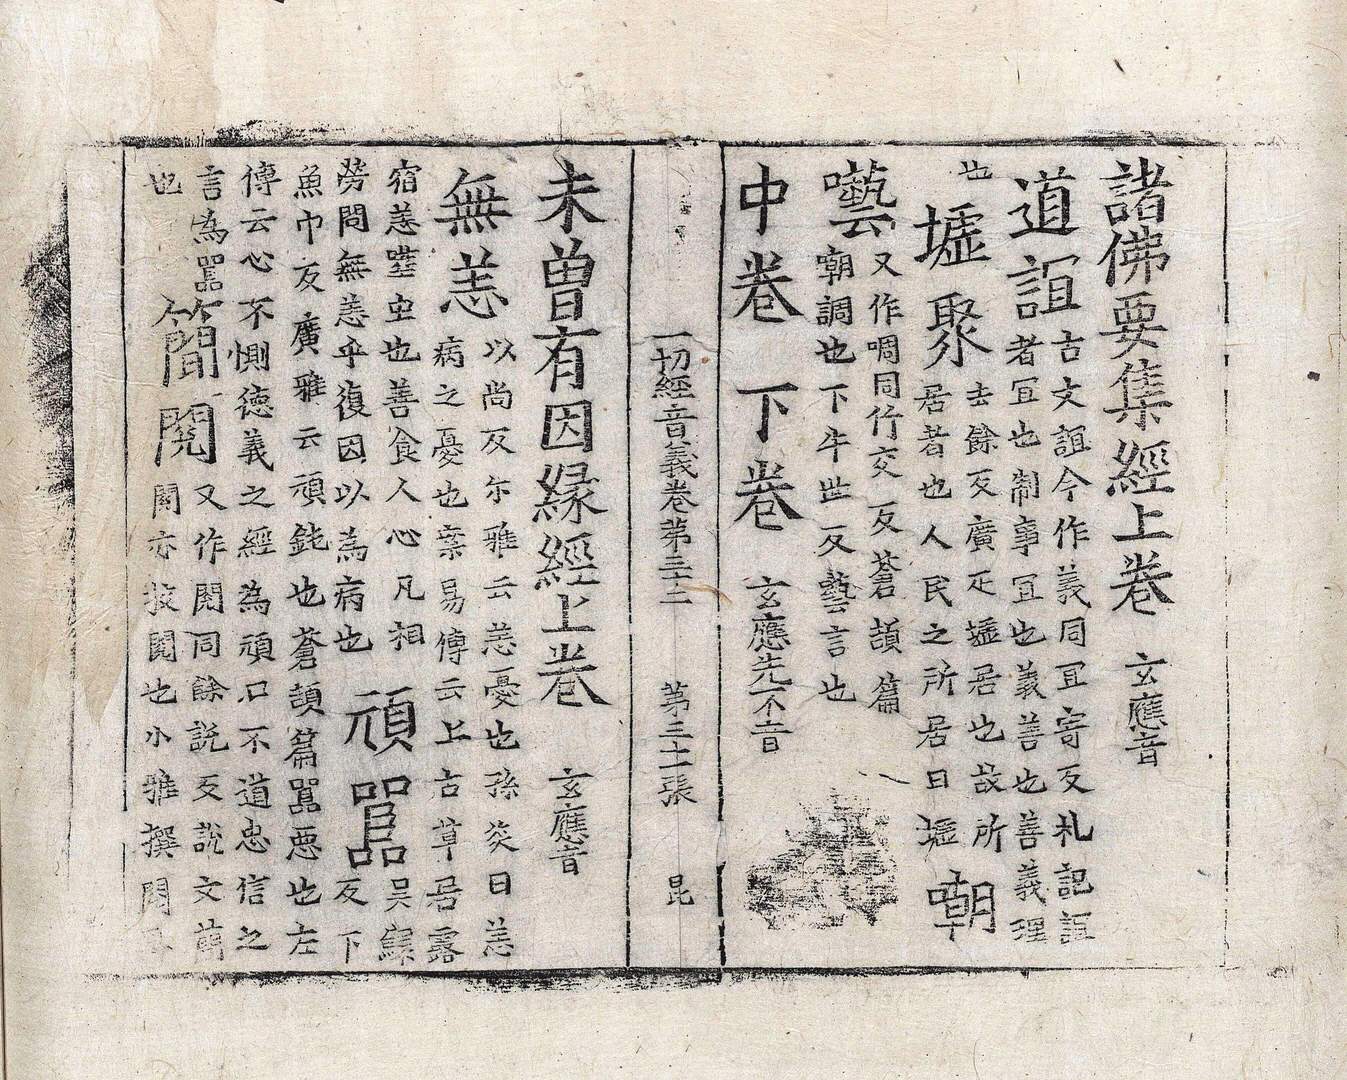 諸佛要集經上卷 玄應音
道誼 古文誼今作義同冝寄反礼記誼
者冝也制事冝也義善也善義理
也 墟聚 去餘反廣疋墟居也故所
居者也人民之所居曰墟 嘲
囈 又作啁同竹交反蒼頡篇
嘲調也下牛世反囈言也
中卷 下卷 玄應先不音
一切經音義卷第三十二 第三十一張 昆
未曾有因緣經上卷 玄應音
無恙 以尚反尓雅云恙憂也孫炎曰恙
病之憂也案易傳云上古草居露
宿恙噬虫也善食人心凡相
勞問無恙乎復因以為病也 頑嚚 吴鰥
反下
魚巾反廣雅云頑鈍也蒼頡篇嚚悪也左
傳云心不惻德義之經為頑口不道忠信之
言為嚚
也 簡閱 又作閲同餘説反說文簡
閱亦披閱也小雅撰閱